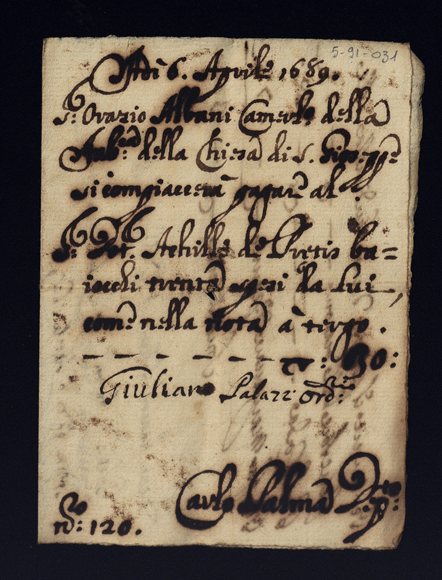 5-91-031
Adi 6. Aprile 1689.
Sr. Orazio Albani Camerlo. della
della Chiesa di S. Giosppe
si compiaccerà pagare al
Sr. Dot. Achille de Pretis ba=
iocchi trenta spesi da lui,
come nella nota à tergo.
30:
Giuliano Palazzi ord:
Carlo Palma
No: 120.